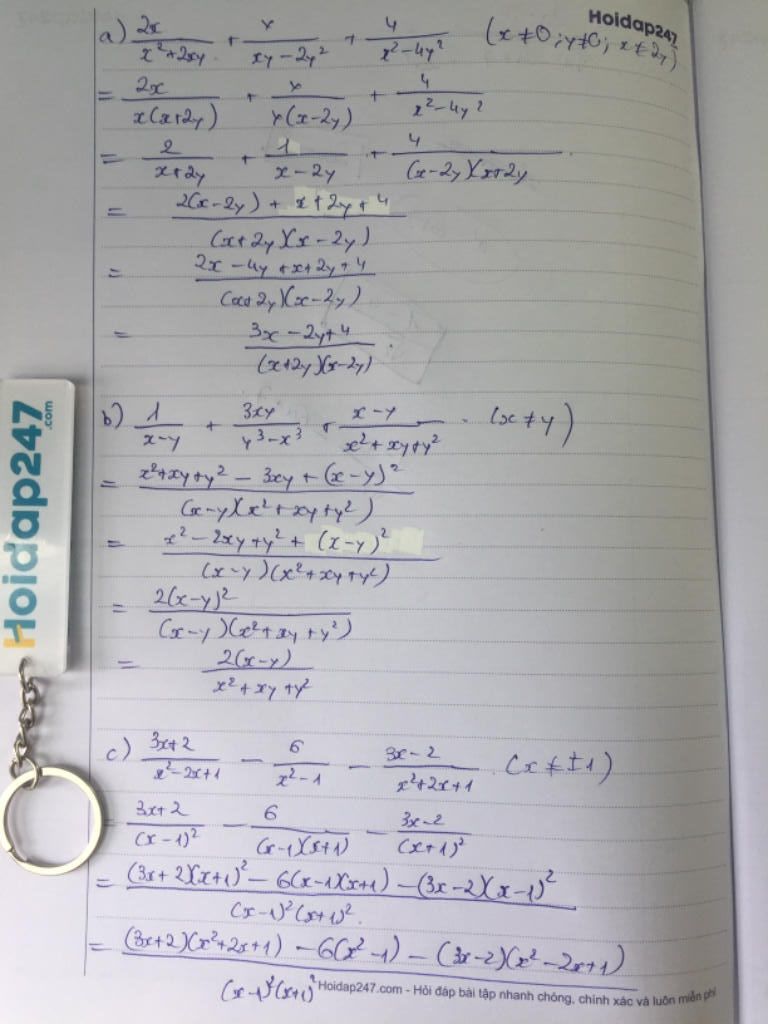 Hoidap247
a) 2x/(x²+2xy) + y/(xy-2y²) + 4/(x²-4y²) (x≠0; y≠0; x≠2y)
= 2x/(x(x+2y)) + y/(y(x-2y)) + 4/(x²-4y²)
= 2/(x+2y) + 1/(x-2y) + 4/((x-2y)(x+2y
= (2(x-2y) + x+2y+4)/((x+2y)(x-2y))
= (2x-4y+x+2y+4)/((x+2y)(x-2y))
= (3x-2y+4)/((x+2y)(x-2y)).
b) 1/(x-y) + 3xy/(y³-x³) + (x-y)/(x²+xy+y²) . (x≠y)
= (x²+xy+y² - 3xy + (x-y)²)/((x-y)(x²+xy+y²))
= (x²-2xy+y² + (x-y)²)/((x-y)(x²+xy+y²))
= 2(x-y)²/((x-y)(x²+xy+y²))
= 2(x-y)/(x²+xy+y²)
c) (3x+2)/(x²-2x+1) - 6/(x²-1) - (3x-2)/(x²+2x+1) . (x≠±1)
= (3x+2)/(x-1)² - 6/((x-1)(x+1)) - (3x-2)/(x+1)²
= ((3x+2)(x+1)² - 6(x-1)(x+1) - (3x-2)(x-1)²)/((x-1)²(x+1)².
= ((3x+2)(x²+2x+1) - 6(x²-1) - (3x-2)(x²-2x+1))/((x-1)²(x+1)²
Hoidap247.com
Hoidap247.com - Hỏi đáp bài tập nhanh chóng, chính xác và luôn miễn phí